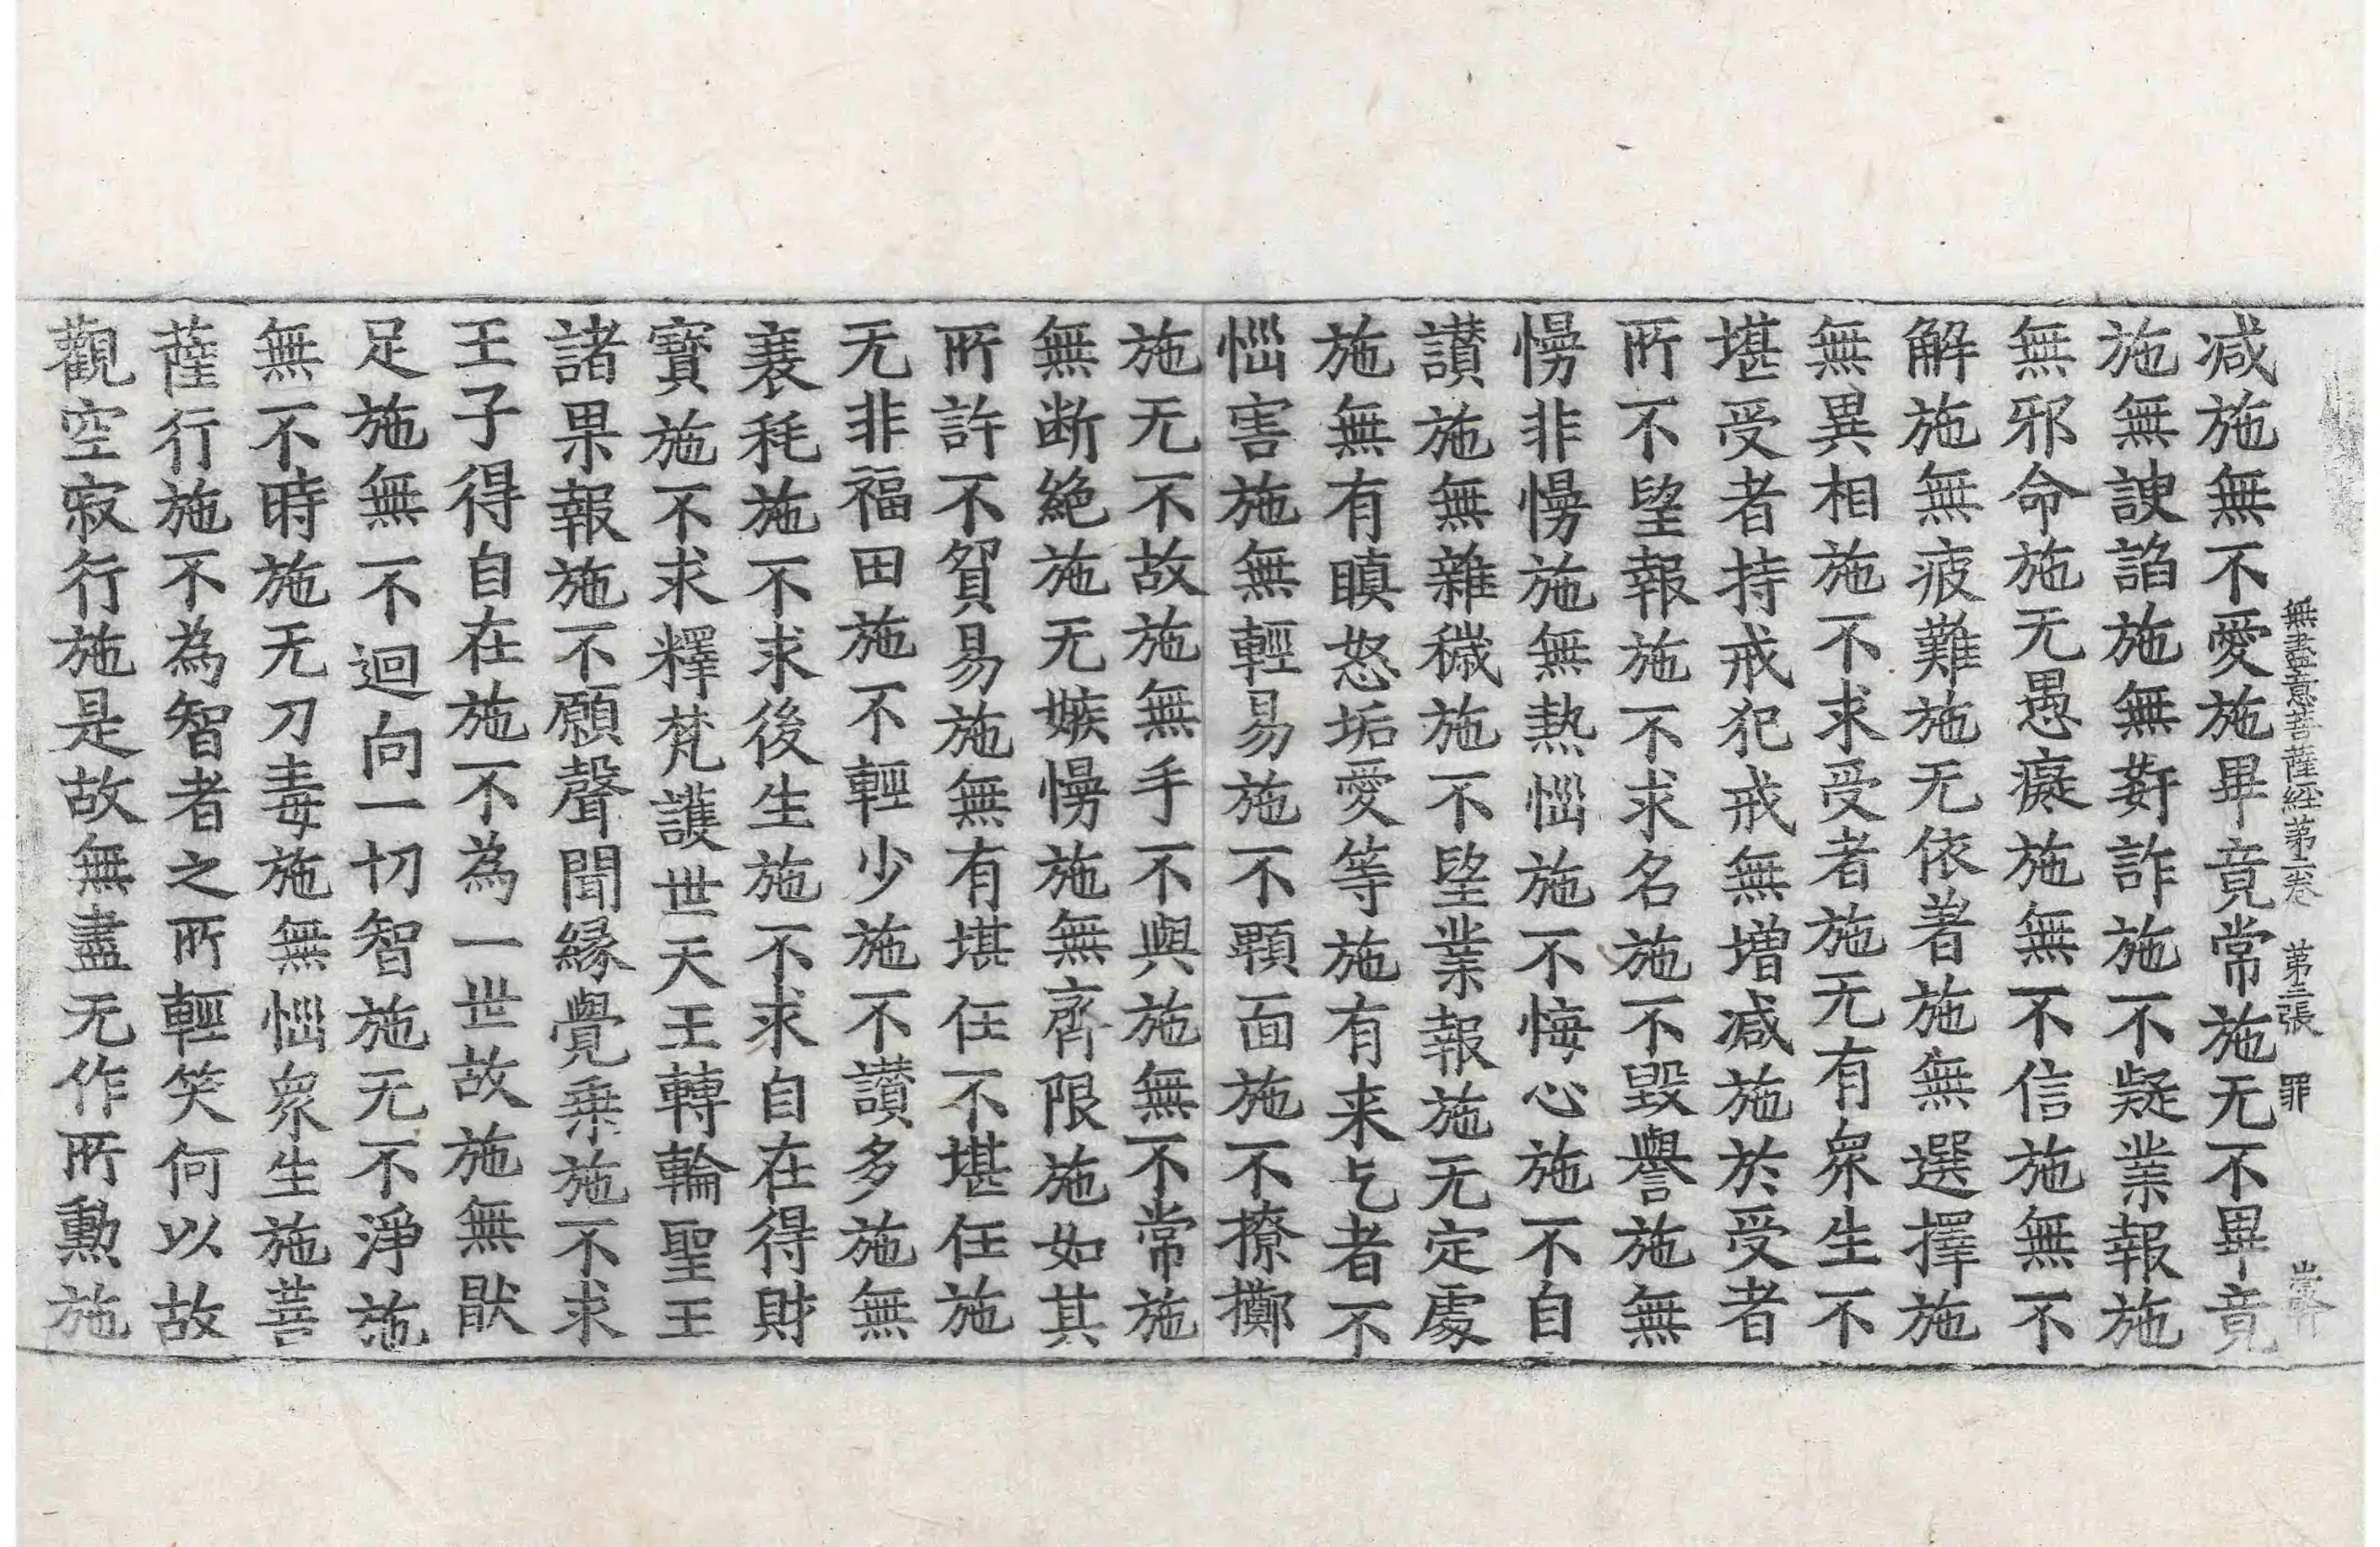 無盡意菩薩経第二卷 第三張 罪
减施無不愛施畢竟常施无不畢竟
施無諛諂施無姧詐施不疑業報施
無邪命施无愚癡施無不信施無不
解施無疲難施无依著施無選擇施
無異相施不求受者施无有衆生不
堪受者持戒犯戒無増减施於受者
所不望報施不求名施不毀譽施無
慢非慢施無熱惱施不悔心施不自
讃施無雜穢施不望業報施无定處
施無有瞋怒垢愛等施有来乞者不
惱害施無輕易施不顰面施不撩擲
施无不故施無手不與施無不常施
無断絶施无嫉慢施無齊限施如其
所許不貿易施無有堪任不堪任施
无非福田施不輕少施不讃多施無
衰耗施不求後生施不求自在得財
寶施不求釋梵護世天王轉輪聖王
諸果報施不願聲聞縁覺乗施不求
王子得自在施不為一世故施無猒
足施無不迴向一切智施无不淨施
無不時施无刀毒施無惱衆生施菩
薩行施不為智者之所輕笑何以故
觀空寂行施是故無盡无作所勲施